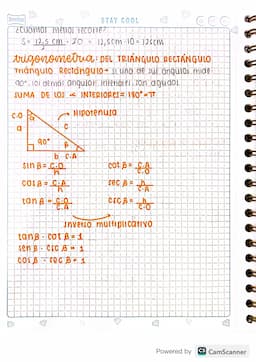 STAY COOL
¿Cuántos metros recorre?
S = 12,5 cm · 20 = 12,5cm · 10 = 125cm
trigonometría: DEL TRIÁNGULO RECTÁNGULO
Triángulo Rectángulo → Si uno de sus ángulos mide
90°, los demás ángulos interiores son agudos.
SUMA DE LOS ∢ INTERIORES = 180° = π
c.o → Hipotenusa
a c
90° β
b c.A
sin β = C.O/h cot β = C.A/C.O
cos β = C.A/h sec β = h/C.A
tan β = C.O/C.A csc β = h/C.O
Inverso multiplicativo
tan β · cot β = 1
sen β · csc β = 1
cos β · sec β = 1
Powered by CS CamScanner